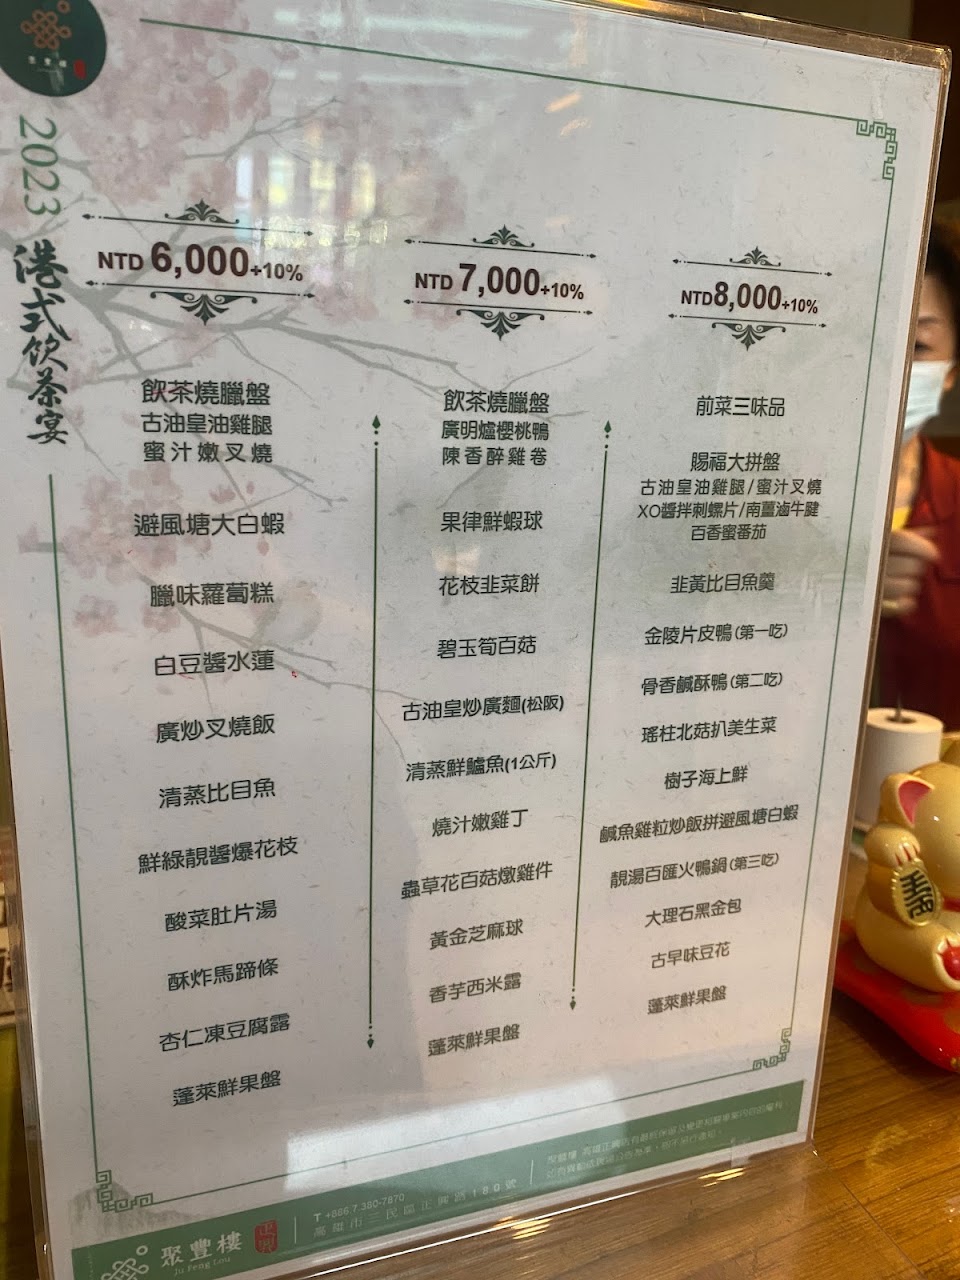 2023 港式飲茶宴
NTD 6,000+10%
飲茶燒臘盤
古油皇油雞腿
蜜汁嫩叉燒
避風塘大白蝦
臘味蘿蔔糕
白豆醬水蓮
廣炒叉燒飯
清蒸比目魚
鮮綠靚醬爆花枝
酸菜肚片湯
酥炸馬蹄條
杏仁凍豆腐露
蓬萊鮮果盤
NTD 7,000+10%
飲茶燒臘盤
廣明爐櫻桃鴨
陳香醉雞卷
果律鮮蝦球
花枝韭菜餅
碧玉筍百菇
古油皇炒廣麵(松阪)
清蒸鮮鱸魚(1公斤)
燒汁嫩雞丁
蟲草花百菇燉雞件
黃金芝麻球
香芋西米露
蓬萊鮮果盤
NTD8,000+10%
前菜三味品
賜福大拼盤
古油皇油雞腿/蜜汁叉燒
XO醬拌刺螺片/南薑滷牛腱
百香蜜番茄
韭黃比目魚羹
金陵片皮鴨(第一吃)
骨香鹹酥鴨(第二吃)
瑤柱北菇扒美生菜
樹子海上鮮
鹹魚雞粒炒飯拼避風塘白蝦
靚湯百匯火鴨鍋(第三吃)
大理石黑金包
古早味豆花
蓬萊鮮果盤
聚豐樓
Ju Feng Lou
正興
T +886.7.380-7870
高雄市三民區正興路180號